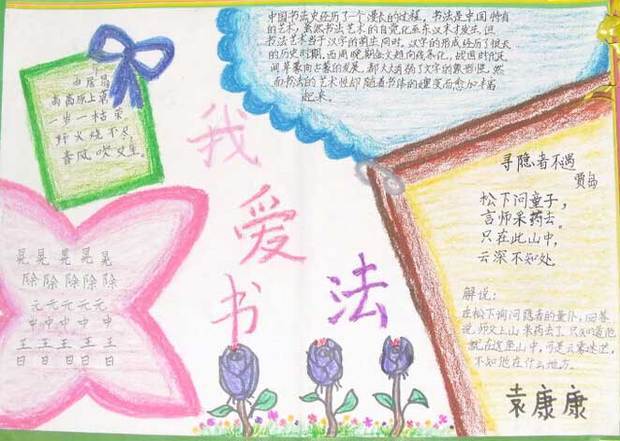 中国书法史经历了一个漫长的过程。书法是中国特有
的艺术,虽然书法艺术的自觉化至东汉末才发生,但
书法艺术当于汉字的萌生同时。汉字的形成经历了很长
的历史时期。西周晚期金文趋向线条化,战国时代民
间草篆向古隶的发展,都大大消弱了文字的象形性。然
而书法的艺术性却随着书体的嬗变而愈加丰富
起来。
居易
离离原上草
一岁一枯荣
野火烧不尽
春风吹又生。
我爱书法
晃晃晃晃晃
除除除除除
元元元元元
中中中中中
王王王王王
日日日日日
寻隐者不遇
贾岛
松下问童子,
言师采药去。
只在此山中,
云深不知处。
解说:
在松下询问隐者的童仆,回答
说,师父上山采药去了。只知道他
就在这座山中,可是云雾迷茫,
不知他在什么地方。
袁康康